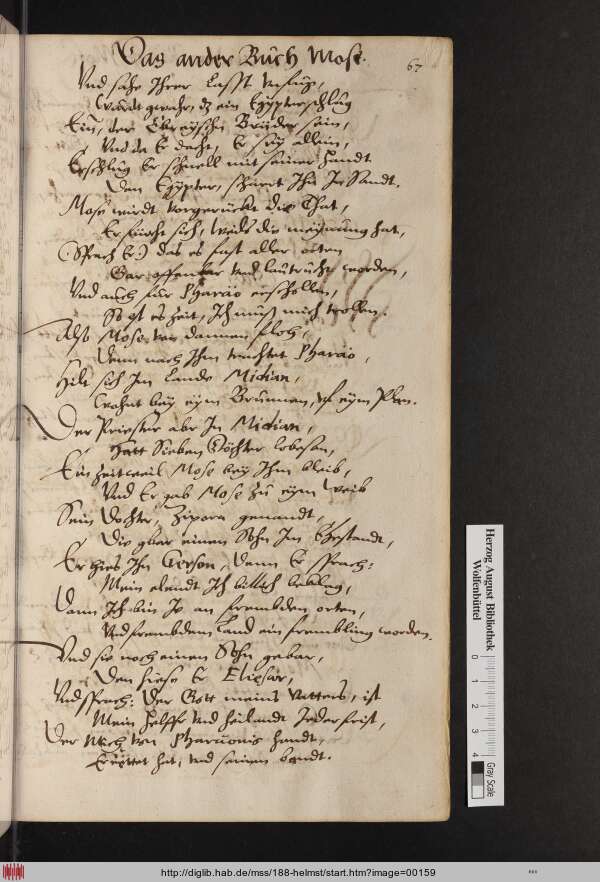 Das ander Buch Mose.
67
Vnd sahe Ihrer Lasst
Wardt gewahr, dz ein Egypterschlug
Ein, der Ebreyschn Brüder sein,
Vnd da Er dacht, Er sey allein,
Erschlug Er schnell mit seiner Handt
Den Egypter, scharrt Ihn In Sandt.
Mose wirdt vorgerückt die That,
Er fürcht sich, die meynung hat,
(Sprach Er) das es fast aller orten
Gar offenbar vnd lautrücht worden,
Vnd auch für Pharao erschollen,
So ist es Zeit, Ich muß mich trollen.
Also Mose von dannen floh,
Denn nach Ihm trachtet Pharao,
Hilt sich Im Lande Midian,
Wohnt bey eym Brunnen, vf eym Plan.
Der Priester abr In Midian,
Hatt Sieben Töchter lobesan,
Ein Zeitweil Mose bey Ihm bleib,
Vnd Er gab Mose zu eym Weib
Sein Dochter, Zipora genandt,
Die gbar einen Sohn Im Ehestandt,
Er hies Ihn Gerson, Dann Er sprach:
Mein elendt Ich billich beklag,
Dann Ich bin Jo an frembden orten,
Vnd frembdem Land ein frembling worden.
Vnd sie noch einen Sohn gebar,
Den hiese Er Eliesar,
Vnd sprach: Der Gott meins Vatters, ist
Mein Helffr vnd Heilandt Jeder frist,
Der Mich von Pharaonis Handt,
Errettet hat, vnd seinem bandt.
Herzog August Bibliothek
Wolfenbüttel
0 1 2 3 4
Gray Scale
http://diglib.hab.de/mss/188-helmst/start.htm?image=00159